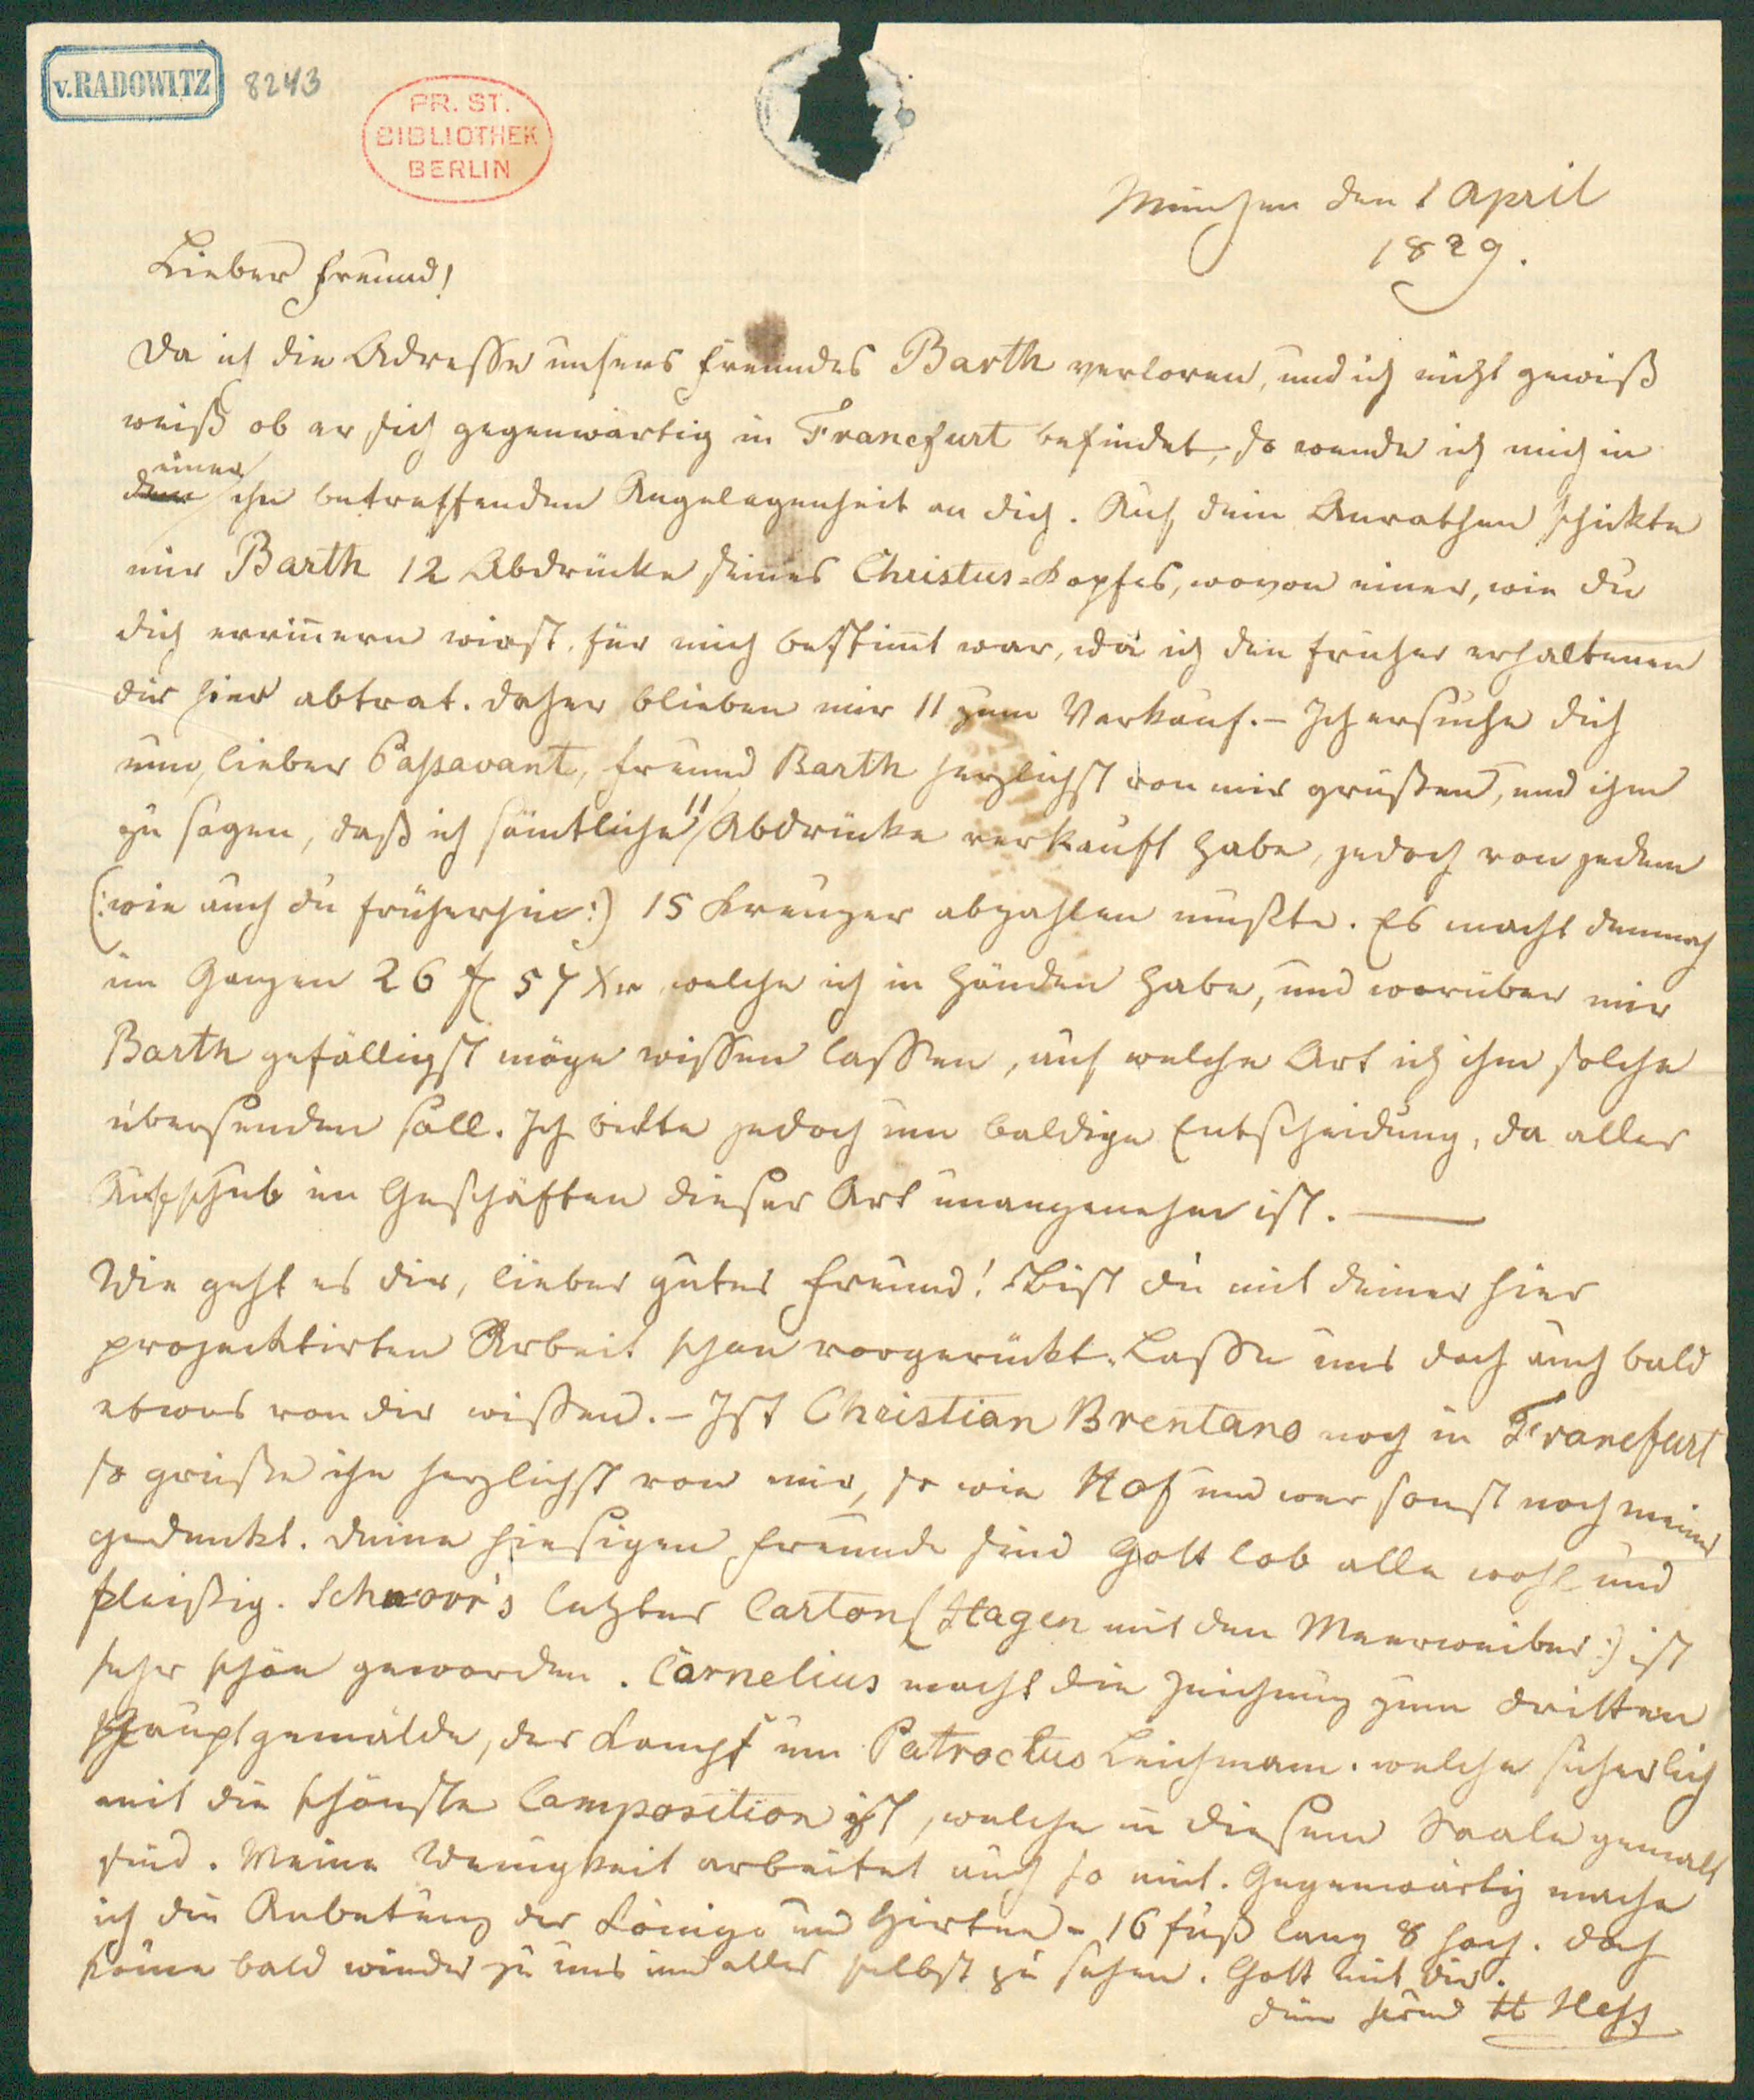 v. RADOWITZ 8243
PR. ST.
BIBLIOTHEK
BERLIN
München den 1 April
1829.
Lieber Freund!
Da ich die Adresse unsers Freundes Barth verloren, und ich nicht gewiß
weiß ob er sich gegenwärtig in Francfurt befindet, so wende ich mich in
einer
ihn betreffenden Angelegenheit an dich. Auf dein Anrathen schikte
mir Barth 12 Abdrücke seines Christus=Kopfes, wovon einer, wie du
dich errinnern wirst, für mich bestimt war, da ich den früher erhaltenen
dir hier abtrat. daher blieben mir 11 zum Verkauf. – Ich ersuche dich
nun, lieber Paßavant, Freund Barth herzlichst von mir grüßen, und ihm
zu sagen, daß ich sämtliche 11 Abdrücke verkauft habe, jedoch von jedem
(: wie auch du früherhin :) 15 Kreuzer abzahlen mußte. Es macht demnach
im Ganzen 26 f 57 Xr welche ich in Händen habe, und worüber mir
Barth gefälligst möge wissen lassen, auf welche Art ich ihm solche
übersenden soll. Ich bitte jedoch um baldige Entscheidung, da aller
Aufschub in Geschäften dieser Art unangenehm ist. —
Wie geht es dir, lieber guter Freund! Bist du mit deiner hier
projecktirten Arbeit schon vorgerückt. Lasse uns doch auch bald
etwas von dir wissen. – Ist Christian Brentano noch in Francfurt
so grüße ihn herzlichst von mir, so wie Hof und wer sonst noch meiner
gedenkt. Deine hiesigen Freunde sind Gott lob alle wohl und
fleißig. Schnorr's letzter Carton (Hagen mit den Meerweiber :) ist
sehr schön geworden. Cornelius macht die Zeichnung zum dritten
Hauptgemälde, der Kampf um Patroclus Leichnam. welche sicherlich
mit die schönste Composition ist, welche in diesem Saale gemalt
sind. Meine Wenigkeit arbeitet auch so mit. Gegenwärtig mache
ich die Anbetung der Könige und Hirten – 16 fuß lang 8 hoch. doch
kome bald wieder zu uns um alles selbst zu sehen. Gott mit dir.
dein Freund H Heß